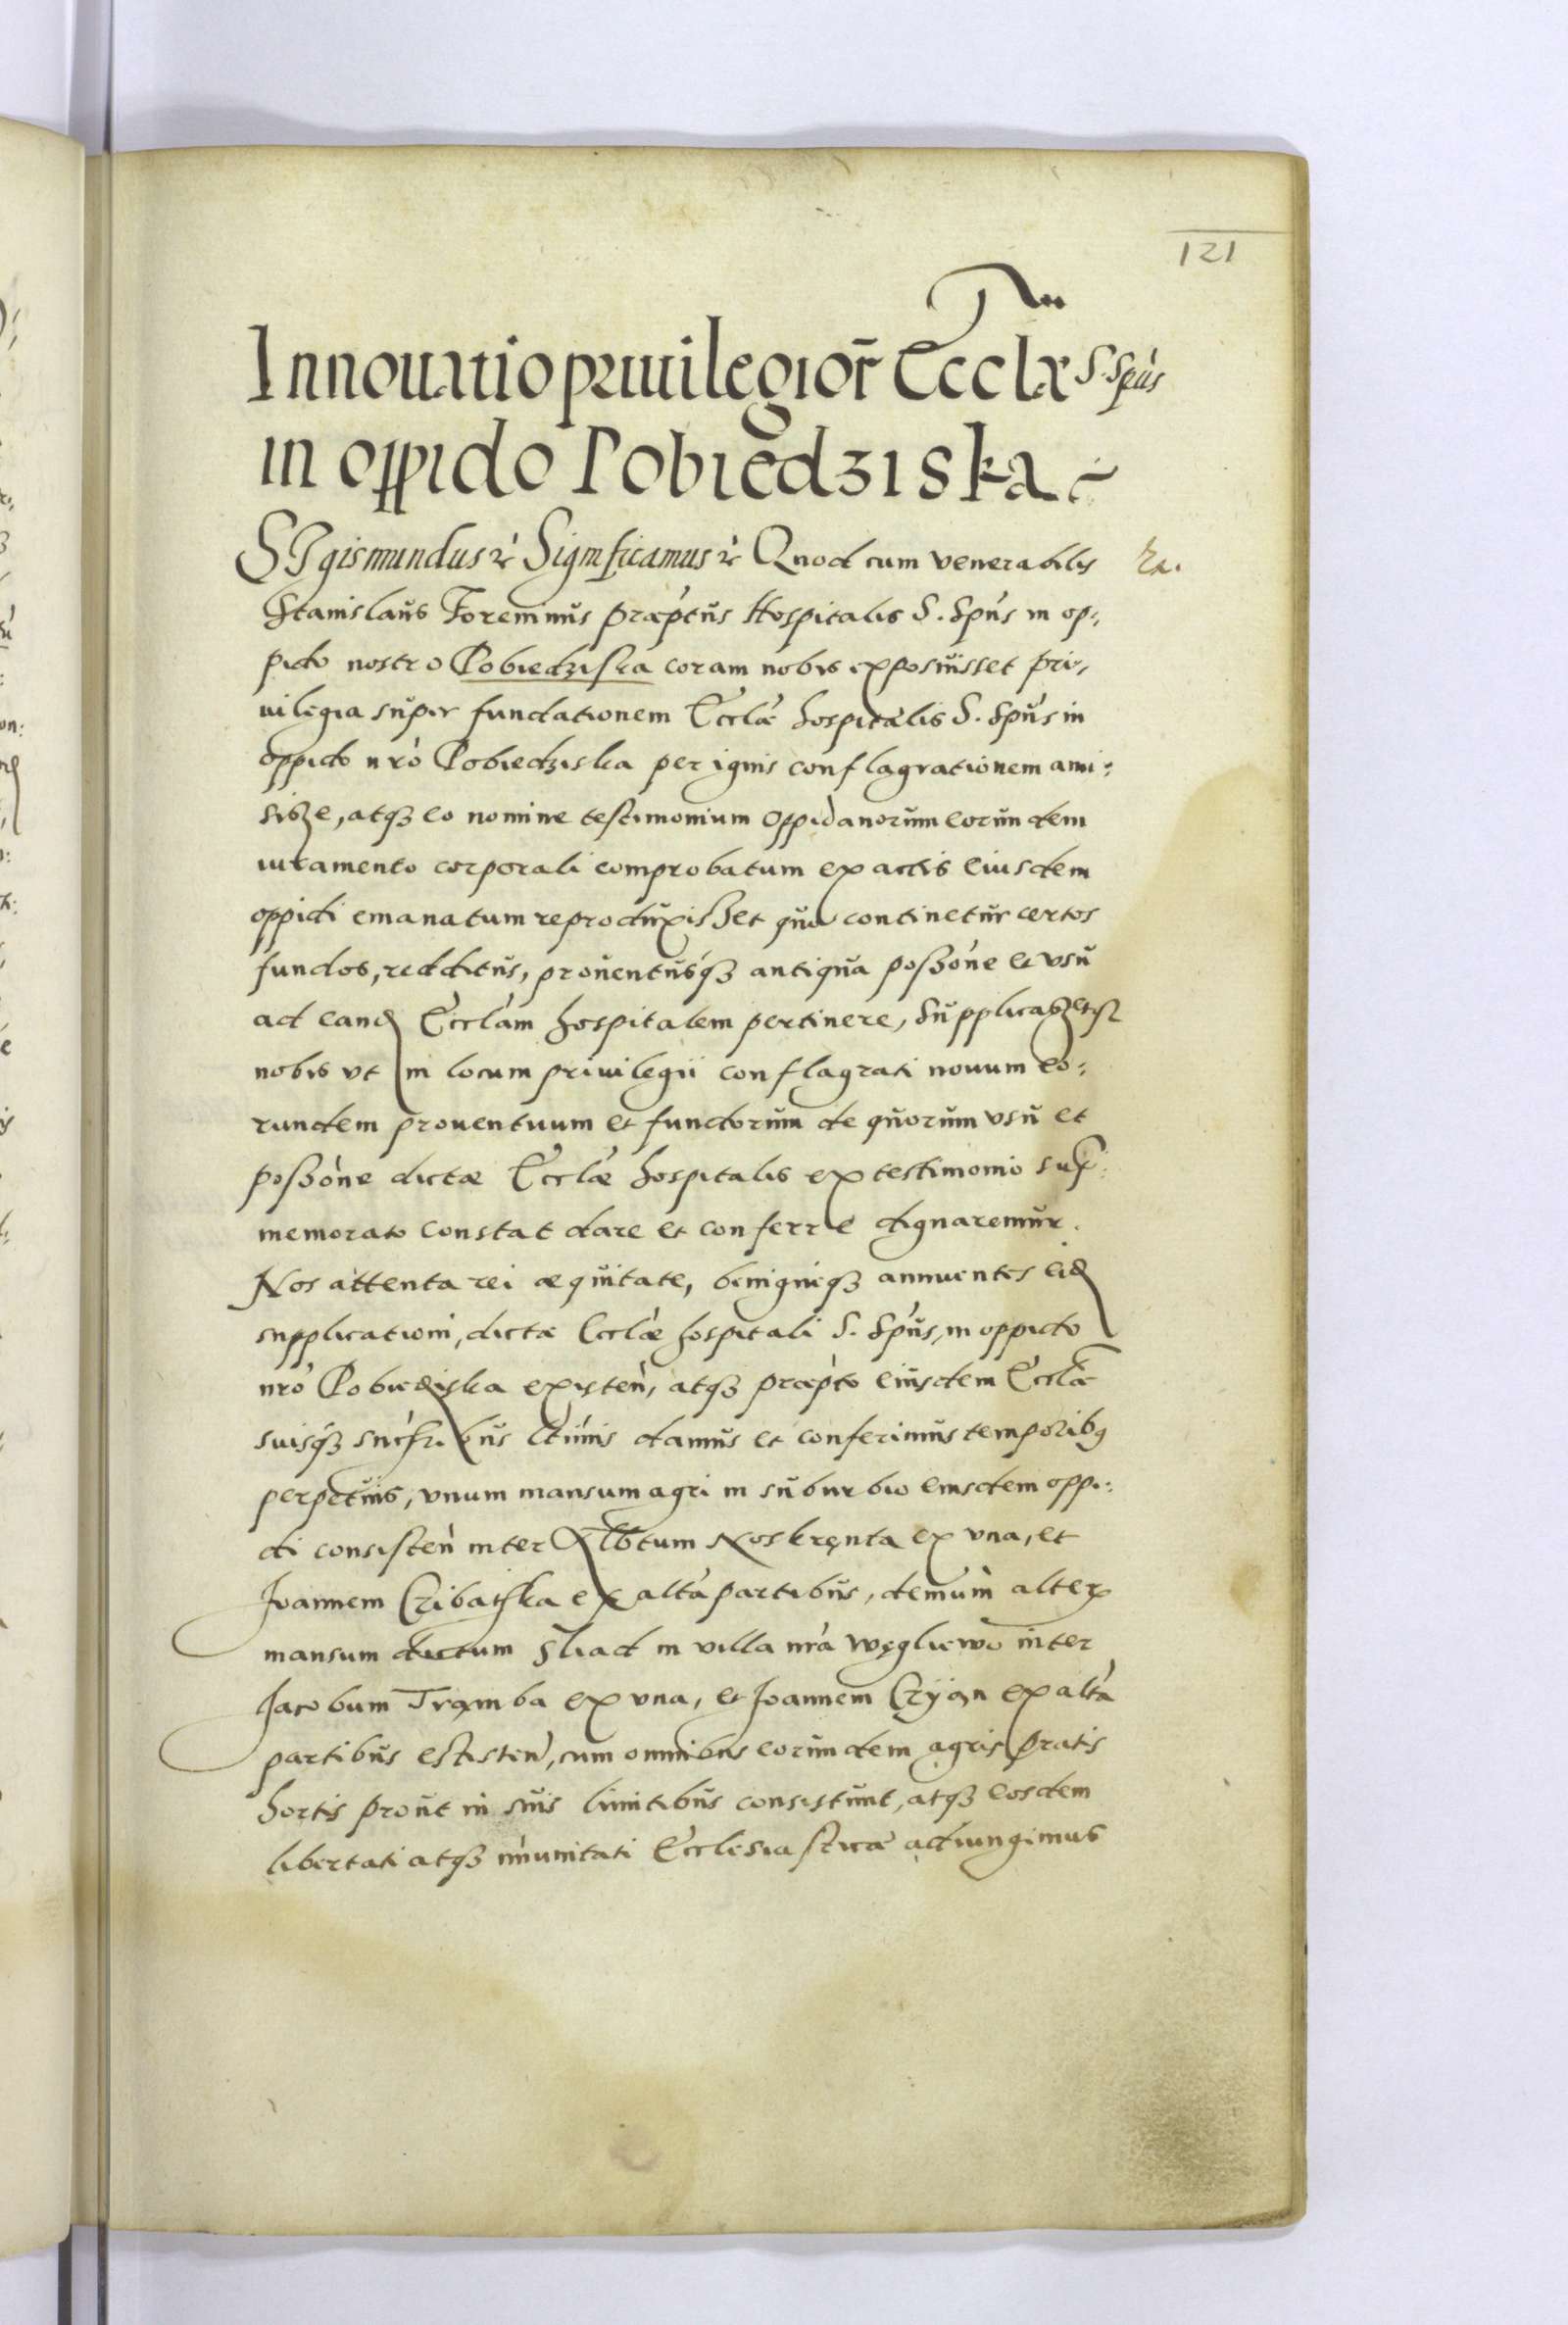 121
Innouatio priuilegior̃ Ecclæ S. Spũs
in oppido Pobiedziska
SIgismundus &c̀ Significamus &c̀ Quod cum venerabilis
Stanislaus Foreminus præp̃tus Hospitalis S. Spũs in op,
pido nostro Pobiedziska coram nobis exposuisset pri,
uilegia super fundationem Ecclæ hospitalis S. Spũs in
oppido nr̃o Pobiedziska per ignis conflagrationem ami:
sisse, atqȝ eo nomine testimonium oppidanorum eorundem
iuramento corporali comprobatum ex actis eiusdem
oppidi emanatum reproduxisset quo continetur certos
fundos, redditus, prouentusqȝ antiqua possõne et vsu
ad eand Ecclãm hospitalem pertinere, Supplicassetqȝ
nobis vt in locum priuilegii conflagrati nouum eo:
rundem prouentuum et fundorum de quorum vsu et
possõne dictæ Ecclæ hospitalis ex testimonio sup:
memorato constat dare et conferre dignaremur.
Nos attenta rei æquitate, benigneqȝ annuentes eid
supplicationi, dictæ Ecclæ hospitali S. Spũs, in oppido
nr̃o Pobiedziska existen̈, atqȝ præp̃to eiusdem Ecclæ
suisqȝ succ̃ribus l̃timis damus et conferimus temporibꝯ
perpetuis, vnum mansum agri in suburbio eiusdem oppi:
di consisteñ inter Alb̃tum Noskręnta ex vna, et
Joannem Czibaiska ex alt̃a partibus, demum alterꝯ
mansum dictum Sliad in villa nr̃a Węgliewo inter
Jacobum Trąmba ex vna, et Joannem Czÿąn ex alt̃a
partibus existeñ, cum omnibus eorundem agris pratis
hortis prout in suis limitibus consistunt, atqȝ eosdem
libertati atqȝ im̃unitati Ecclesiasticæ adiungimus